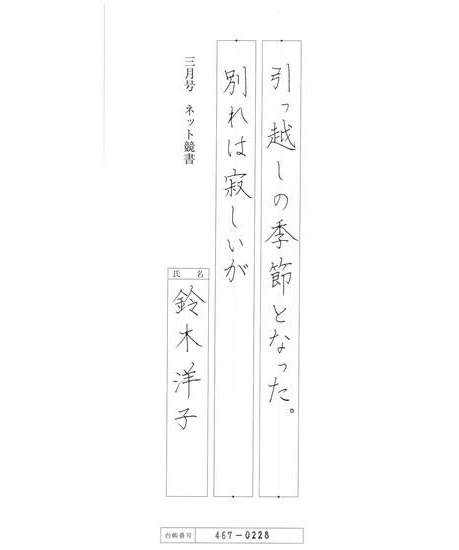 引っ越しの季節となった。
別れは寂しいが
三月号 ネット競書
氏名
鈴木洋子
台帳番号 467-0228